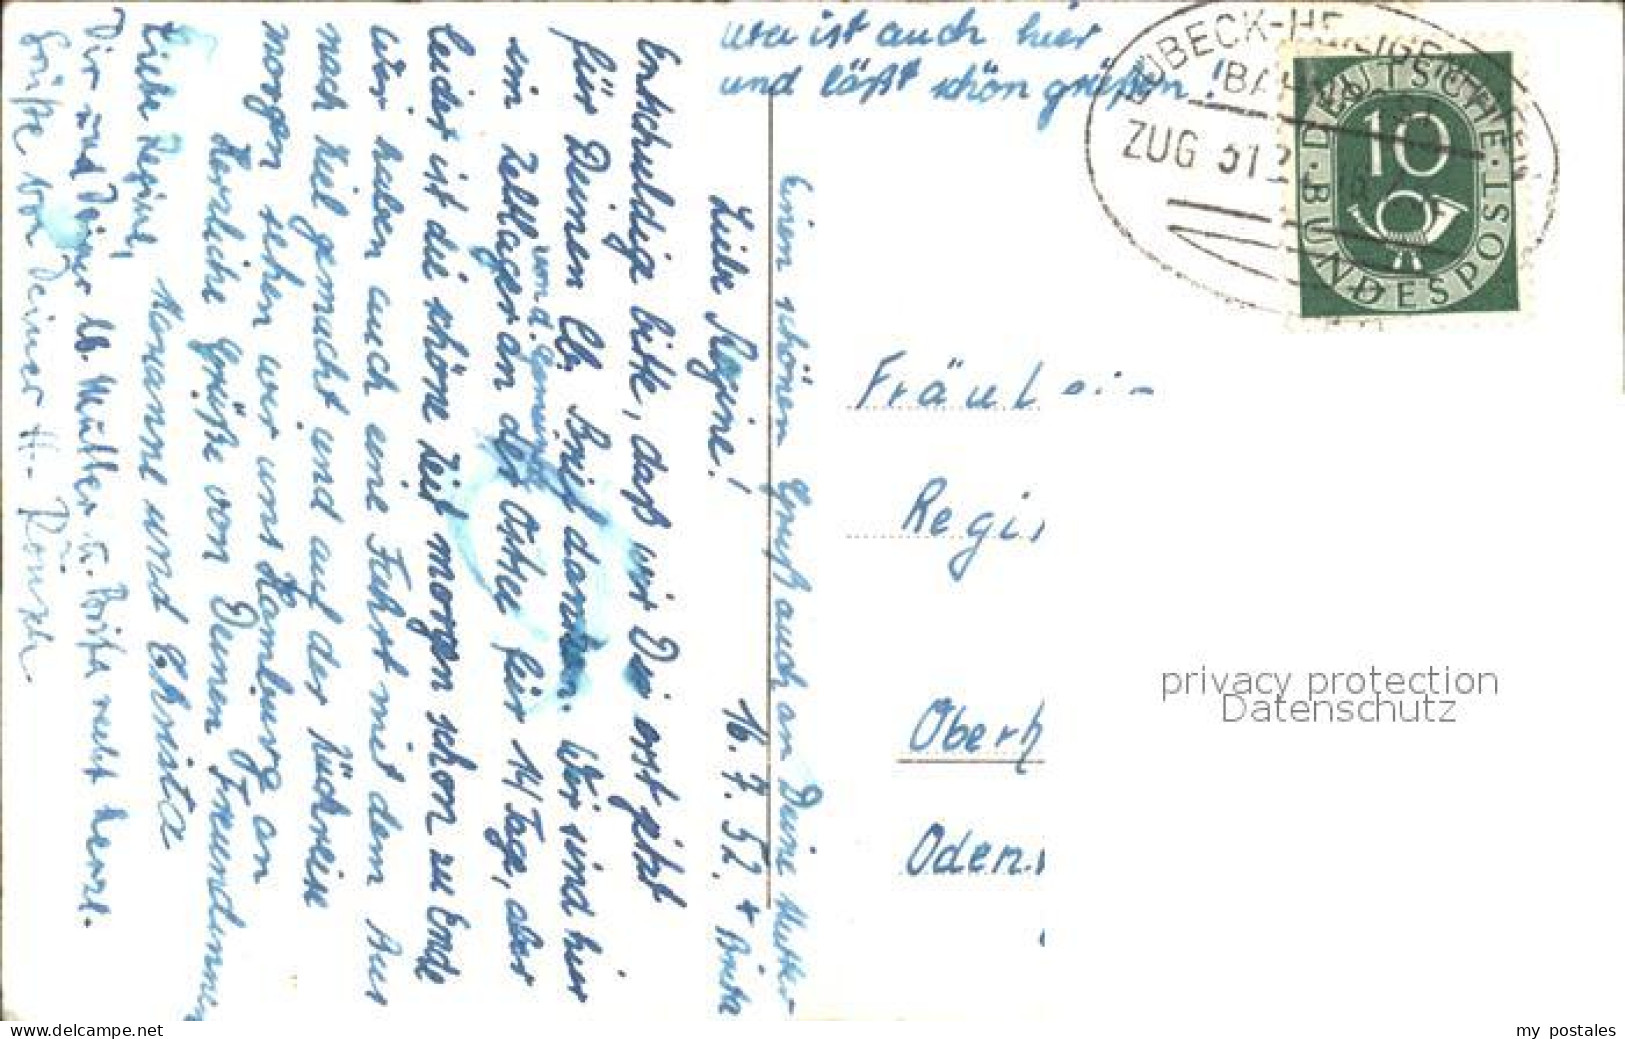 Liebe Regine!
16.7.52.
Entschuldige bitte, daß wir Dir erst jetzt
für Deinen lb. Brief danken. Wir sind hier
von d. Gemeinde
im Zeltlager an der Ostsee für 14 Tage, aber
leider ist die schöne Zeit morgen schon zu Ende
Wir haben auch eine Fahrt mit dem
nach Kiel gemacht und auf der Rückreise
morgen sehen wir uns Hamburg an
Herzliche Grüße von Deinen Freundinnen
Hananne und Christa
Liebe Regine,
Dir und Deiner lb. Mutter u. recht herzl.
Grüße von Deiner H.
Einen schönen Gruß auch an Deine Mutter
ist auch hier
und läßt schön grüßen!
LÜBECK-HEILIGENHAFEN
BAHNPOST
ZUG 512
DEUTSCHE BUNDESPOST
10
Fräulein
Regi
Oberh
Oden
privacy protection
Datenschutz
www.delcampe.net
my postales